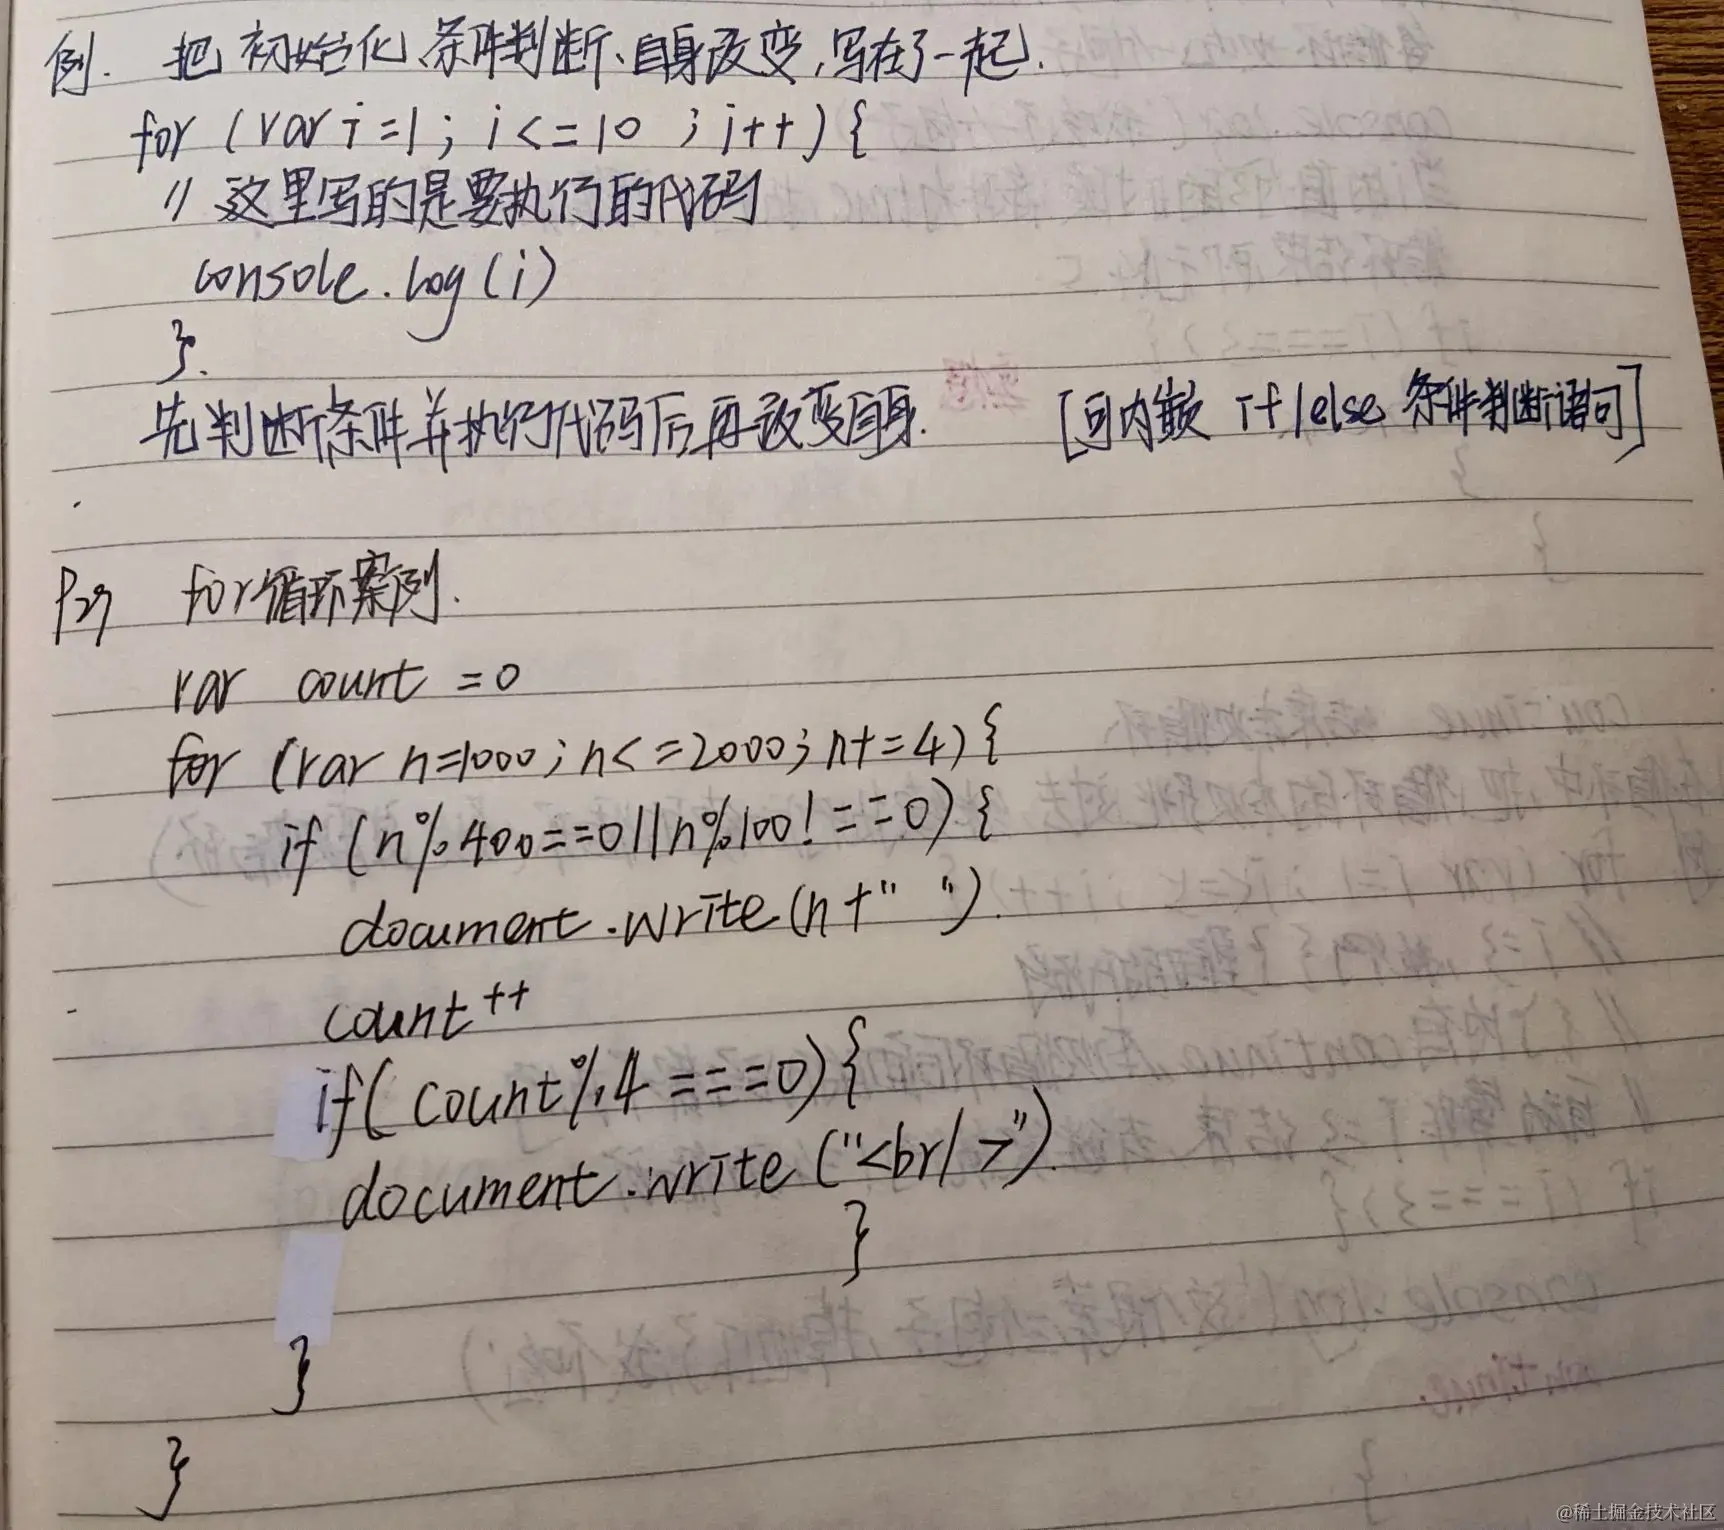 例. 把初始化、条件判断、自身改变,写在了一起.
for (var i=1; i<=10 ; i++) {
// 这里写的是要执行的代码
console.log(i)
}.
先判断条件并执行代码后,再改变自身. [可内嵌 if/else 条件判断语句]
P27 for循环案例.
var count =0
for (var n=1000; n<=2000; n+=4) {
if (n%400==0||n%100!==0) {
document.write(n+" ").
count++
if(count%4===0){
document.write("<br/>").
}
}
}
@稀土掘金技术社区